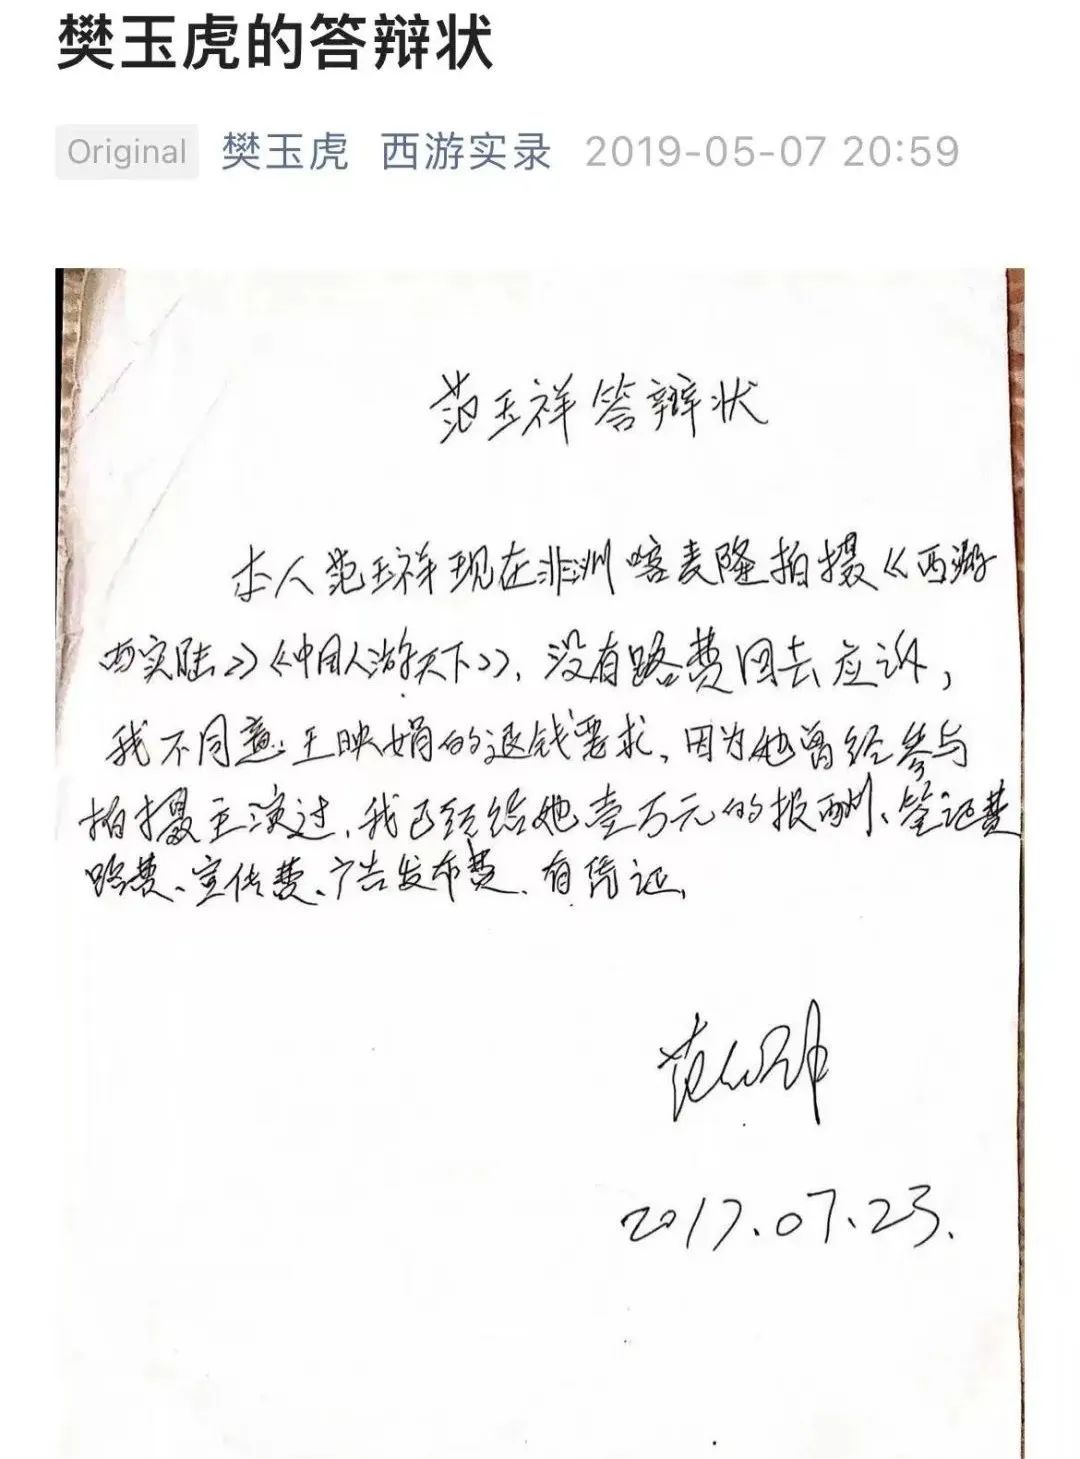 樊玉虎的答辩状
Original 樊玉虎 西游实录 2019-05-07 20:59
范玉祥答辩状
本人范玉祥现在非洲喀麦隆拍摄《西游
西实陆》《中国人游天下》，没有路费回去应诉，
我不同意王映娟的退钱要求，因为她曾经参与
拍摄主演过，我已经给她壹万元的报酬、签证费
路费、宣传费、广告发布费、有凭证。
2017.07.23.